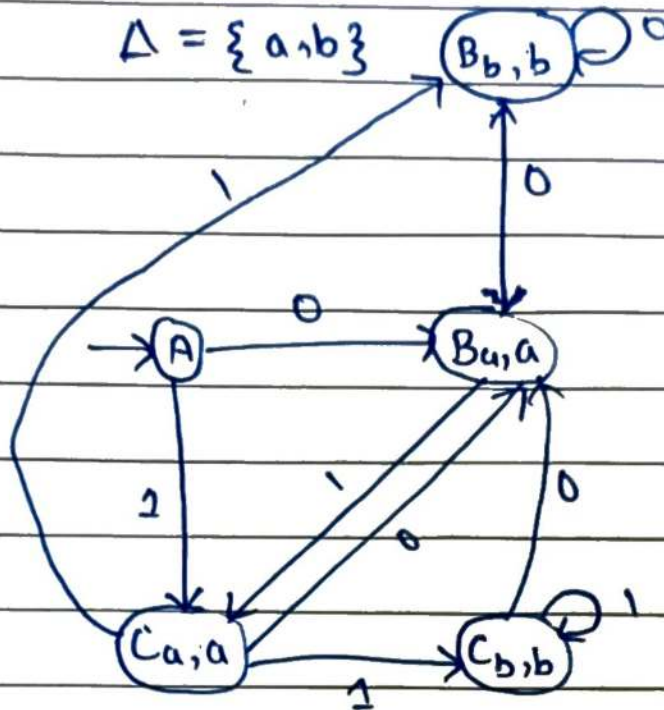 Δ = { a,b}
Bb, b
0
1
0
0
A
Ba, a
1
1
0
0
1
Ca, a
Cb, b
1